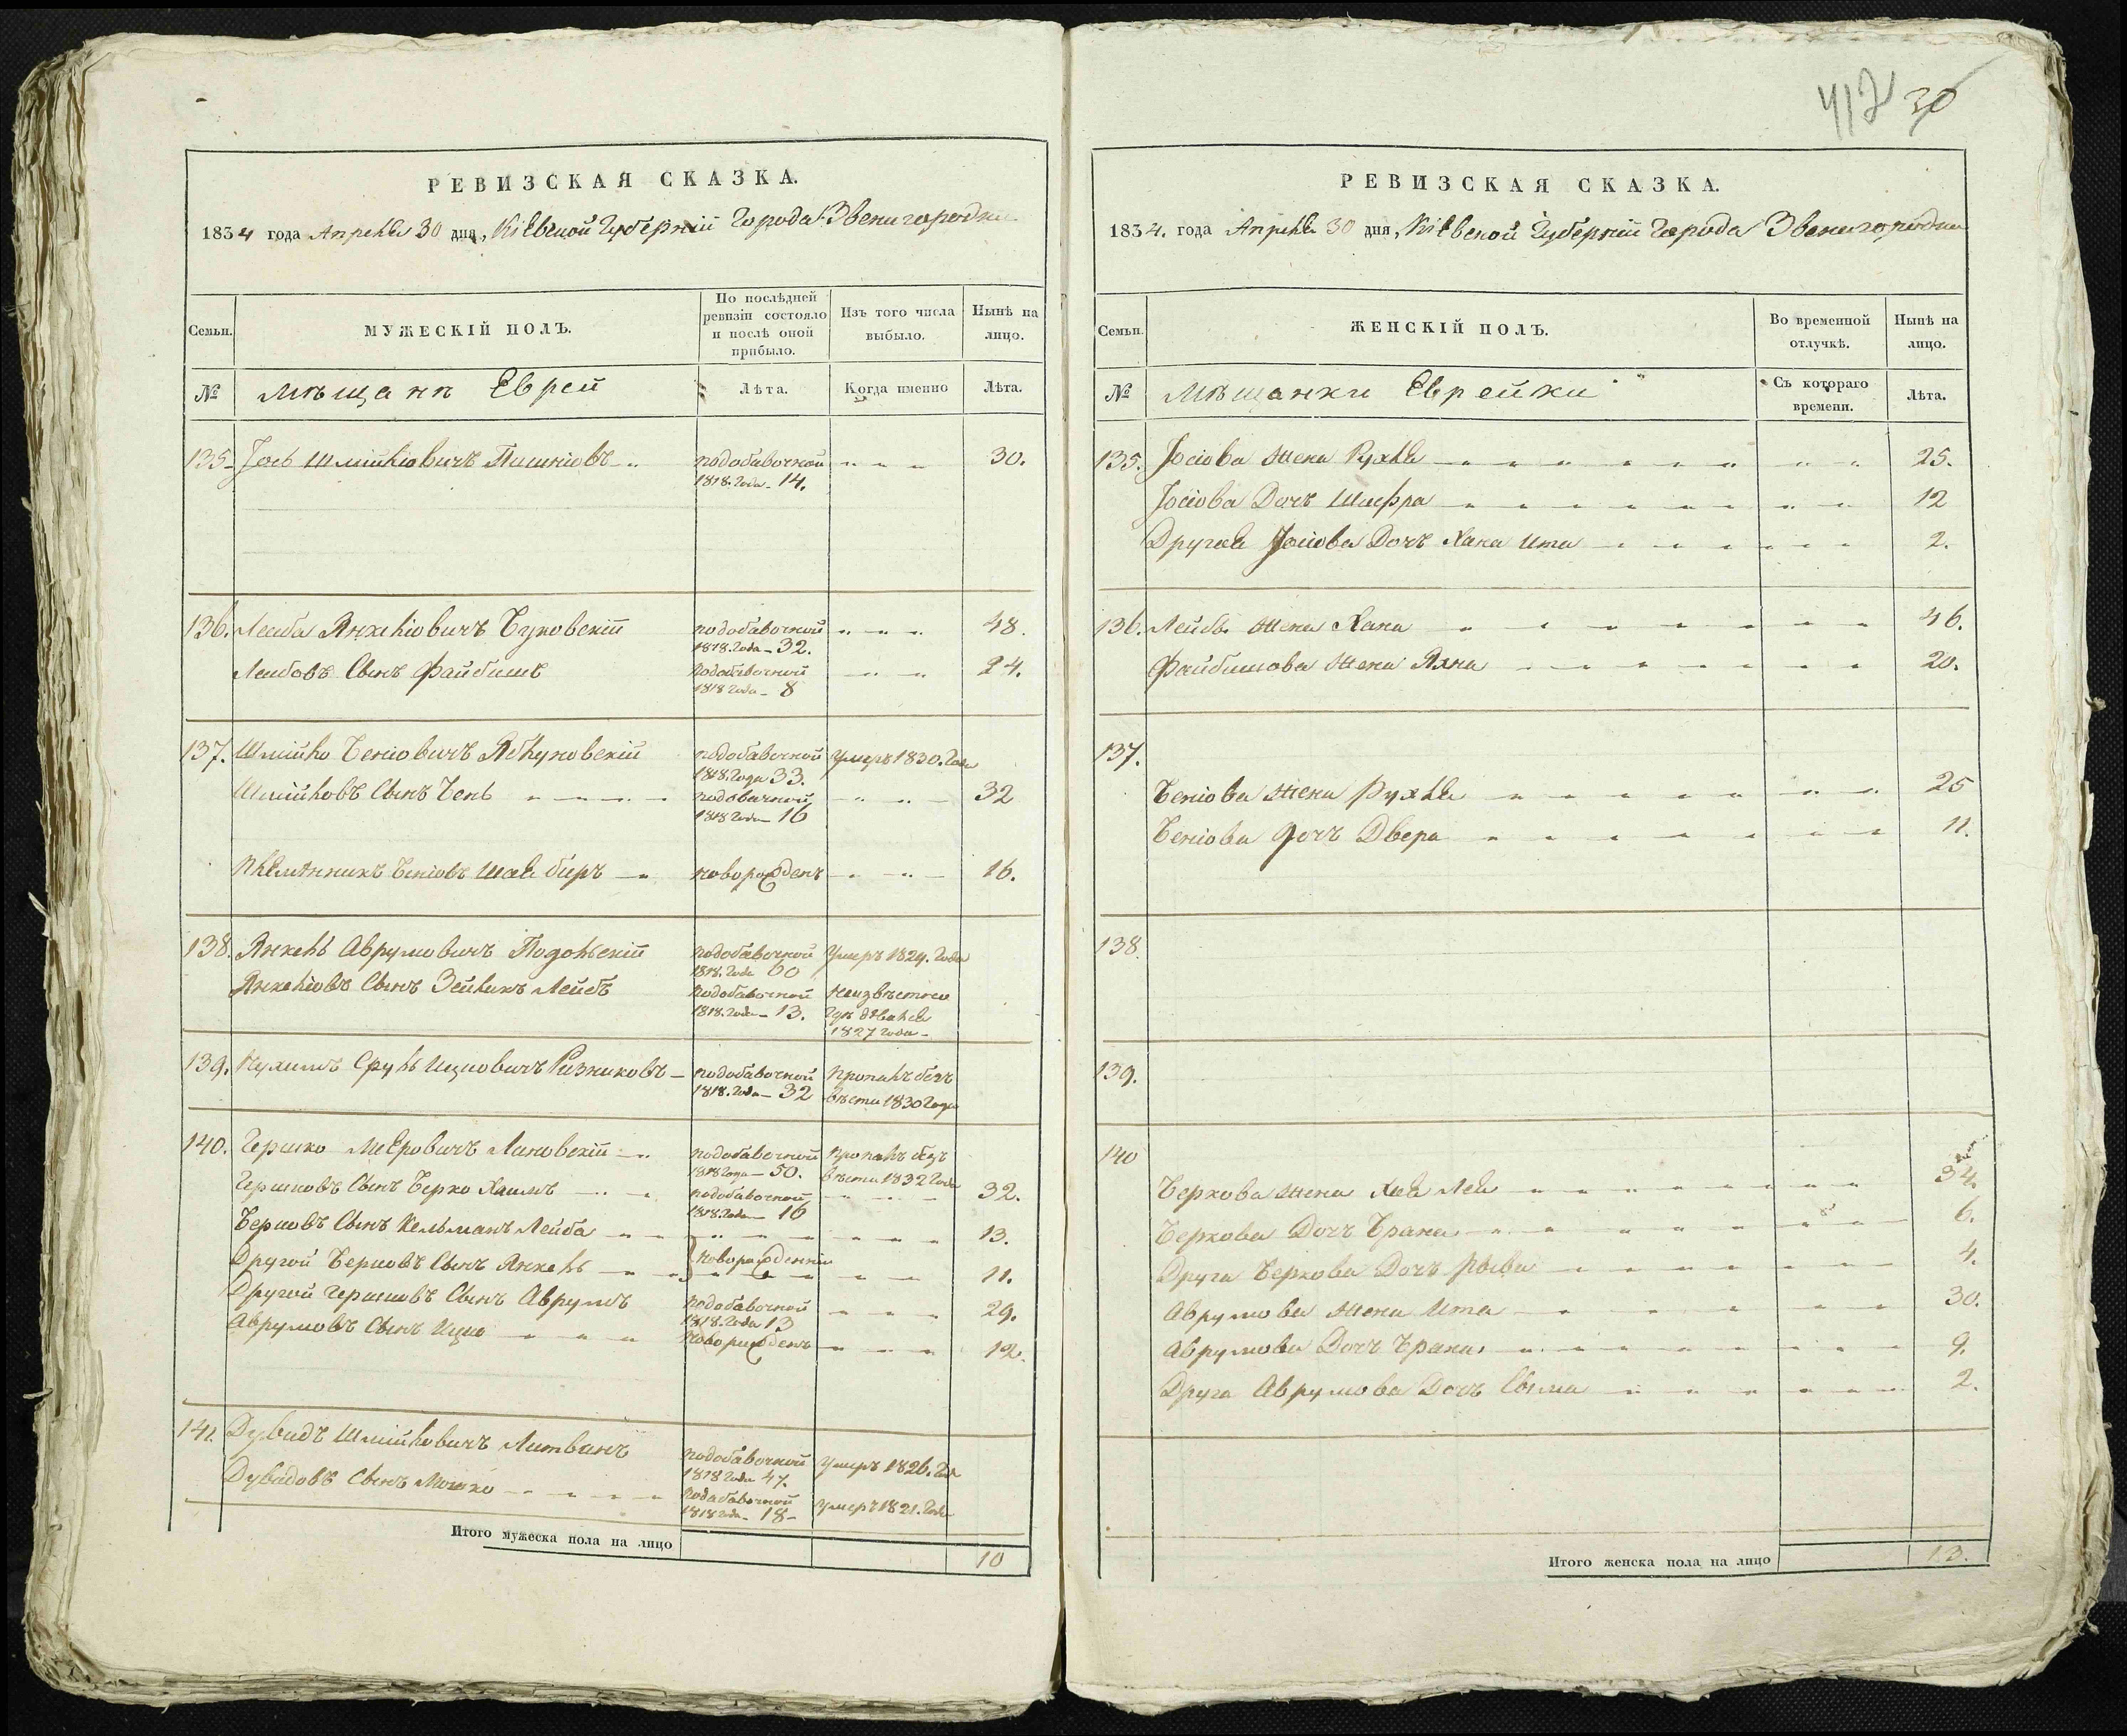 РЕВИЗСКАЯ СКАЗКА.
1834 года Апреля 30 дня, Кіевской Губерніи Города Звенигородки
Семьи.
МУЖЕСКІЙ ПОЛЪ.
По послѣдней ревизіи состояло и послѣ оной прибыло.
Изъ того числа выбыло.
Нынѣ на лицо.
№
Мѣщане Евреи
Лѣта.
Когда именно
Лѣта.
135. Іось Шмійловичъ подобавочной 30.
1818. Года 14.
136. Лейба Янкеліовичъ Буковскій подобавочной 48.
1818. Года 32.
Лейбовъ Сынъ Файбишъ подобавочной 24.
1818 Года 8
137. Шмійло Беніовичъ Яблуновскій подобавочной Умеръ 1830. Года
1818. Года 33.
Шмійловъ Сынъ Бень подобавочной 32
1818 Года 16
Племянникъ Беніовъ новорожденъ 16.
138. Янкель Аврумовичъ Подольскій подобавочной Умеръ 1829. Года
1818. Года 60
Янкеліовъ Сынъ Зейликъ Лейбъ подобавочной Неизвѣстно
1818. Года 13. где дѣвался
1827 Года
139. Нухимъ Сруль Ицковичъ Резниковъ подобавочной Пропалъ безъ
1818. Года 32 вѣсти 1830 Года
140. Гершко Меировичъ подобавочной Пропалъ безъ
1818 Года 50. вѣсти 1832 Года
Гершковъ Сынъ Берко Хаимъ подобавочной 32.
1818. Года 16
Берковъ Сынъ Кельманъ Лейба 13.
новорожденніи
Другой Берковъ Сынъ Янкель 11.
Другой Гершковъ Сынъ Аврумъ подобавочной 29.
1818. Года 13
Аврумовъ Сынъ Ицко новорожденъ 12.
141. Дувидъ Шмійловичъ Литванъ подобавочной Умеръ 1826. Года
1818 Года 47.
Дувидовъ Сынъ Мошко подобавочной Умеръ 1821. Года
1818 Года 18
Итого мужеска пола на лицо 10
412 30
РЕВИЗСКАЯ СКАЗКА.
1834. года Апреля 30 дня, Кіевской Губерніи Города Звенигородки
Семьи.
ЖЕНСКІЙ ПОЛЪ.
Во временной отлучкѣ.
Нынѣ на лицо.
№
Мѣщанки Еврейки
Съ котораго времени.
Лѣта.
135. Іосіова Жена Рухля 25.
Іосіова Дочъ Шифра 12
Другая Іосіова Дочъ Хана Ита 2.
136. Лейбы Жена Хана 46.
Файбишова Жена 20.
137.
Беніова Жена Рухля 25
Беніова Дочъ Двера 11.
138.
139.
140
Беркова Жена Хая Лея 34.
Беркова Дочъ Брана 6.
Друга Беркова Дочъ Рыва 4.
Аврумова Жена Ита 30.
Аврумова Дочъ Брана 9.
Друга Аврумова Дочъ Сыма 2.
Итого женска пола на лицо 13.